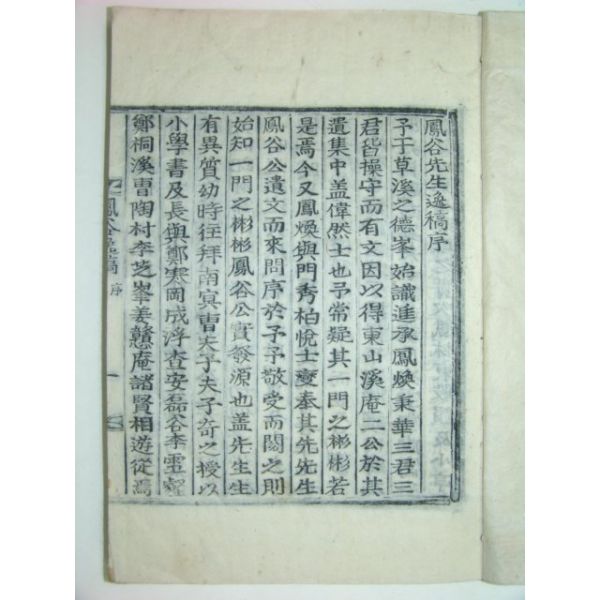 鳳谷先生逸稿序
予于草溪之德峯始識進承鳳煥秉華三君三
君皆操守而有文因以得東山溪庵二公於其
遺集中盖偉然士也予常疑其一門之彬彬若
是焉今又鳳煥與門秀柏悅士變奉其先先生
鳳谷公遺文而來問序於予予敬受而閱之則
始知一門之彬彬鳳谷公實發源也盖先生生
有異質幼時往拜南冥曺夫子夫子奇之授以
小學書及長與鄭寒岡成浮査安磊谷李雪壑
鄭桐溪曺陶村李芝峯姜戇庵諸賢相遊從焉
鳳谷逸稿 序 一